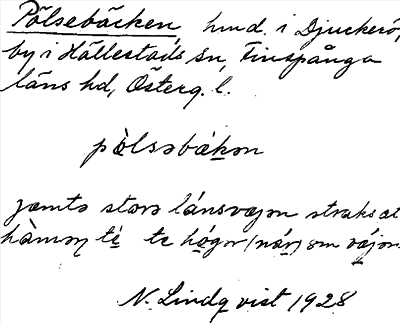 Pölsebäcken, hmd. i Djuckerö,
by i Hällestads sn, Finspånga
läns hd, Österg. l.
pø̀lsəbä́kən
jæmtə storə lánsvæjən straks at
hàməŋ té te hǿgər (nä́r) om vä́jən.
N. Lindqvist 1928